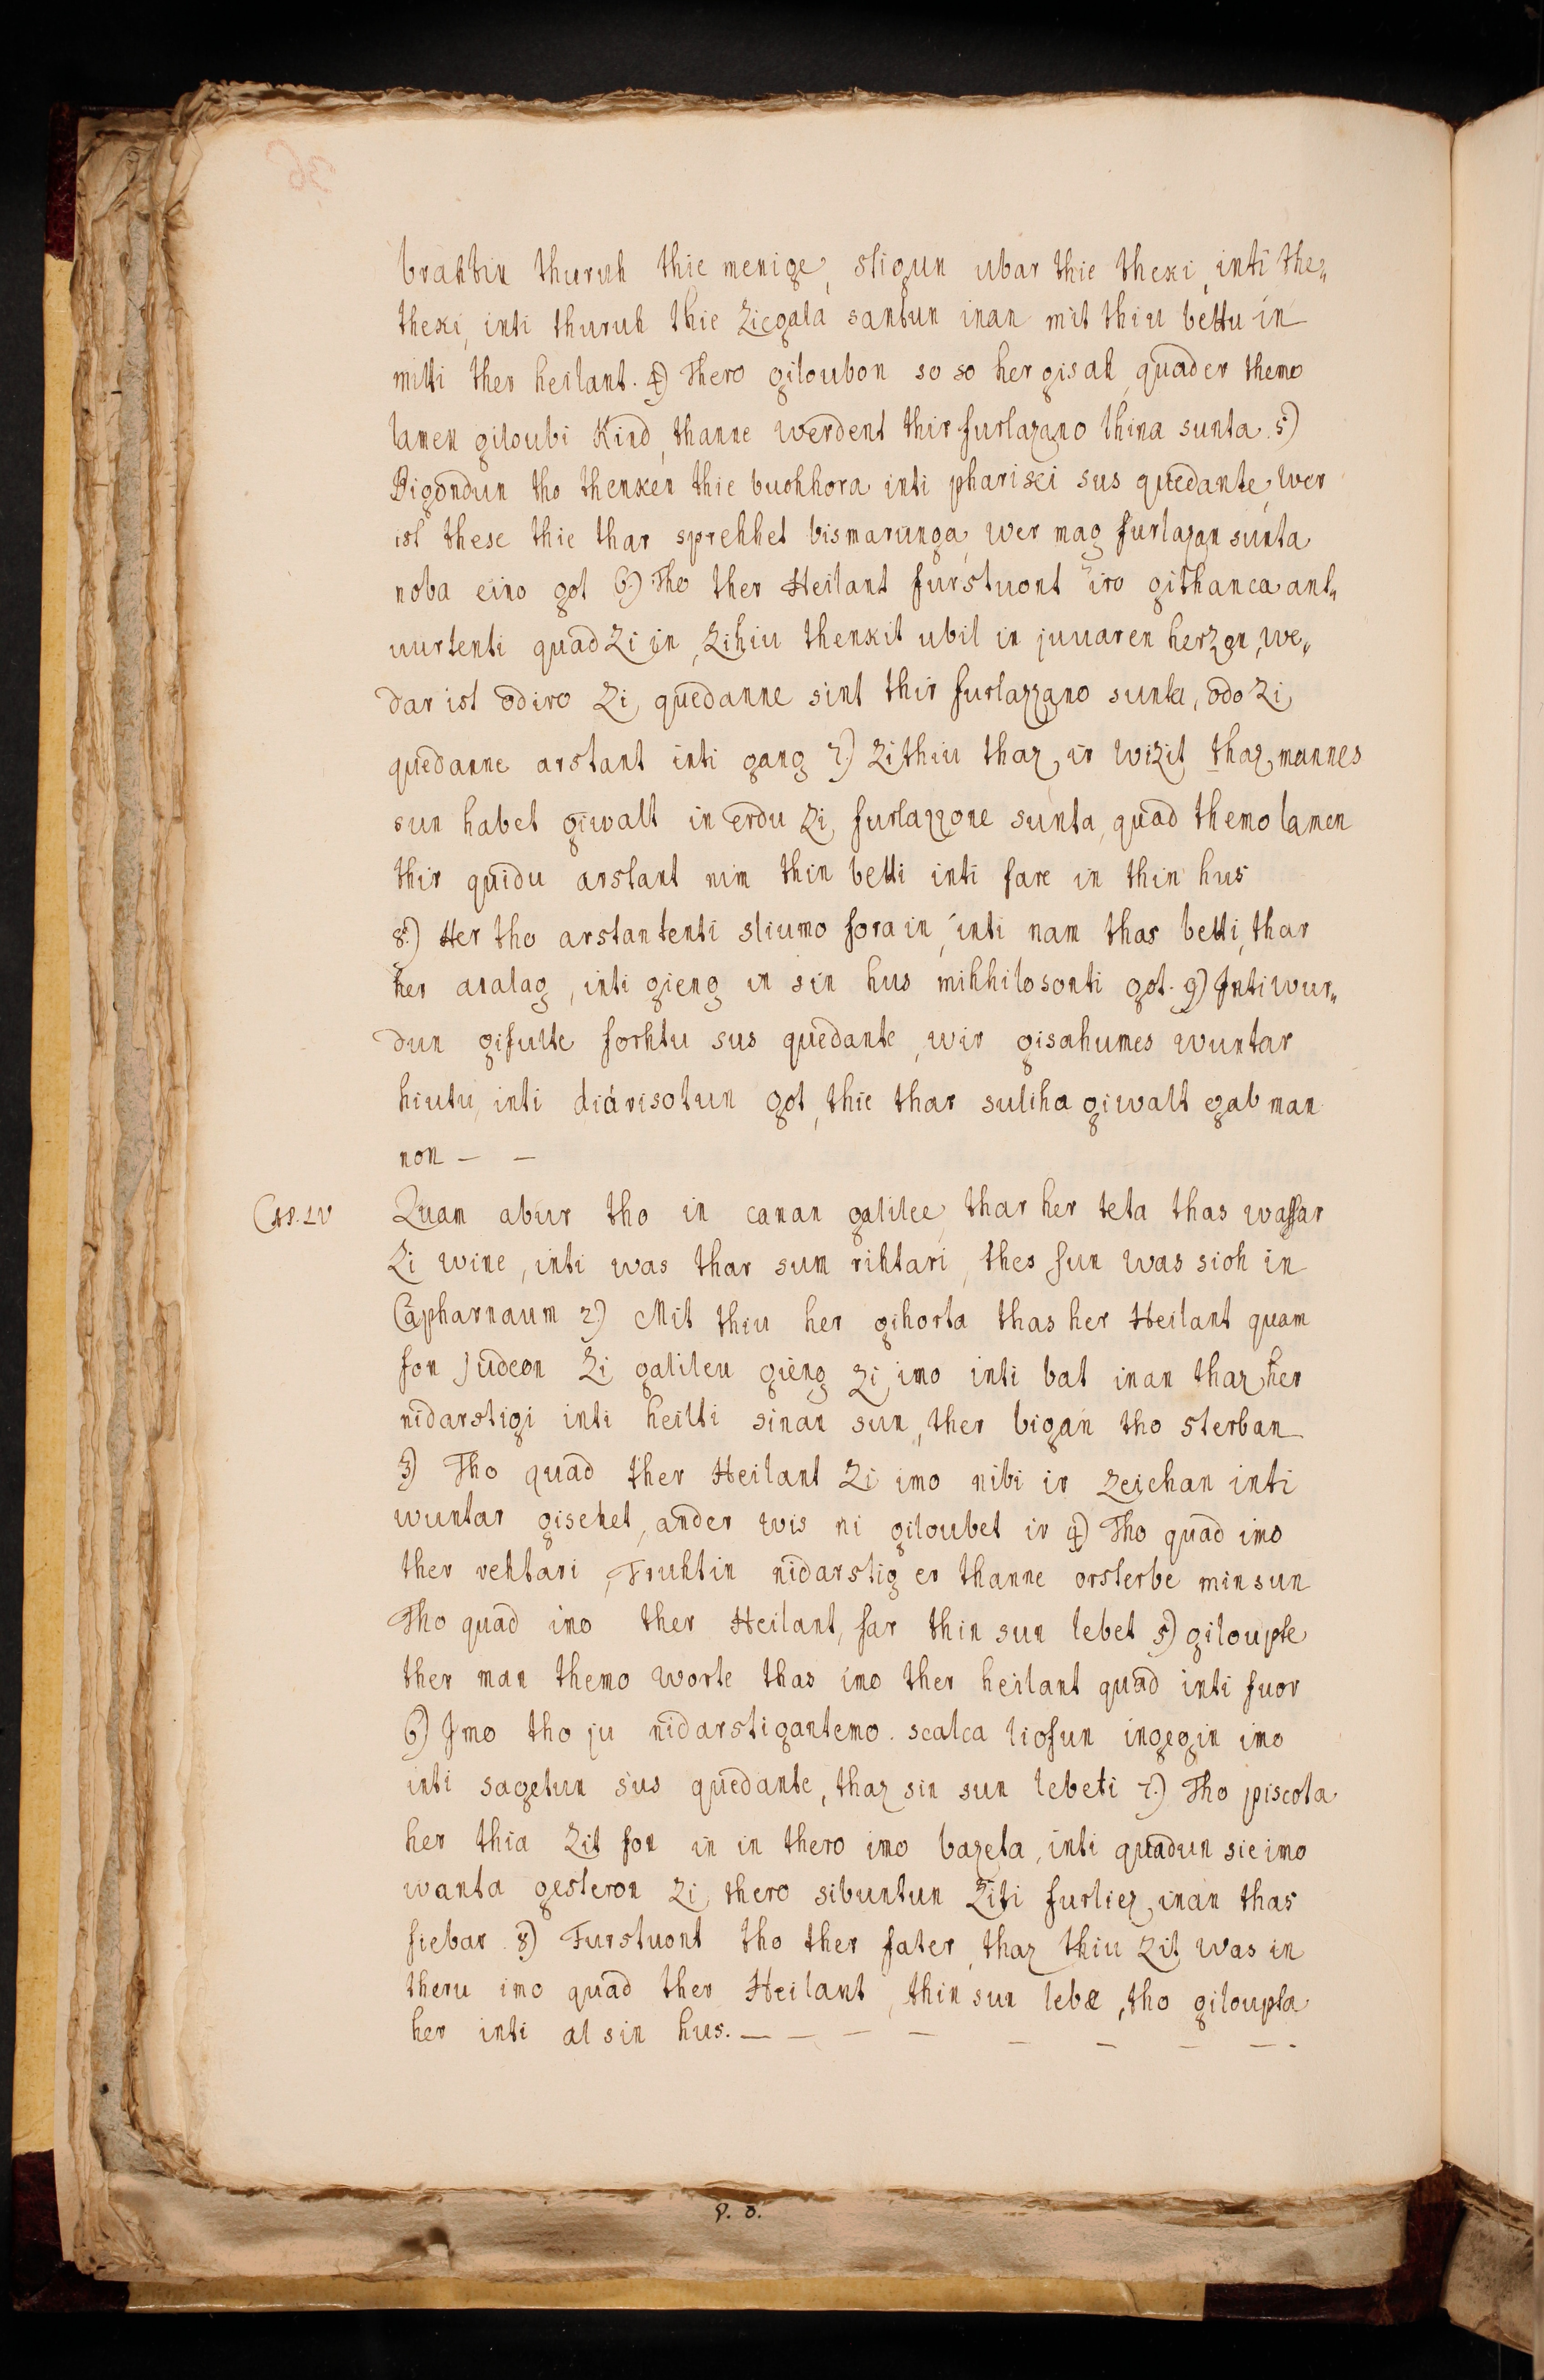 brahtin thuruh thie menige, stigun ubar thie theki, inti the„
theki, inti thuruh thie Ziegala santun inan mit thiu bettu in
mitti ther heilant. 4) Thero giloubon so so her gisah, quader themo
lamen giloubi Kind, thanne werdent thir furlazano thina sunta. 5)
Bigondun tho thenken thie buohhora inti pharisei sus quedante, wer
ist these thie thar sprehhet bismarunga, wer mag furlazan sunta
noba eino got 6.) Tho ther Heilant furstuont iro githanca ant„
uurtenti quad Zi in, Zihiu thenkit ubil in juuaren herzon, we„
dar ist odiro Zi quedanne sint thir furlazzano sunta, odo Zi
quedanne arstant inti gang 7.) Zi thiu thaz ir wizit thaz mannes
sun habet giwalt in erdu Zi furlazzone sunta, quad themo lamen
thir quidu arstant nim thin betti inti fare in thin hus
8.) Her tho arstantenti sliumo fora in, inti nam thas betti, thar
her aralag, inti gieng in sin hus mihhilosonti got. 9) Inti wur„
dun gifulte forhtu sus quedante, wir gisahumes wuntar
hiutu, inti diarisotun got, thie thar suliha giwalt gab man
non — —
Cap. LV
Quam abur tho in canan galilee, thar her teta thas wassar
Zi wine, inti was thar sum rihtari, thes sun was sioh in
Capharnaum 2.) Mit thiu her gihorta thas her Heilant quam
fon Judeon Zi galileu gieng zi imo inti bat inan thaz her
nidarstigi inti heilti sinan sun, ther bigan tho sterban
3) Tho quad ther Heilant Zi imo nibi ir Zeichan inti
wuntar gisehet, ander wis ni giloubet ir 4) Tho quad imo
ther rehtari, Truhtin nidarstig er thanne orsterbe min sun
Tho quad imo ther Heilant, far thin sun lebet 5) giloupte
ther man themo worte thas imo ther heilant quad inti fuor
6) Imo tho ju nidarstigantemo. scalca liofun ingegin imo
inti sagetun sus quedante, thaz sin sun lebeti 7.) Tho piscota
her thia Zit fon in in thero imo bazeta, inti quadun sie imo
wanta gesteron Zi thero sibuntun Ziti furliez inan thas
fiebar. 8) Furstuont tho ther fater, thaz thiu Zit was in
theru imo quad ther Heilant, thin sun lebæ, tho giloupta
her inti al sin hus. — — — — — — — —.
P. o.